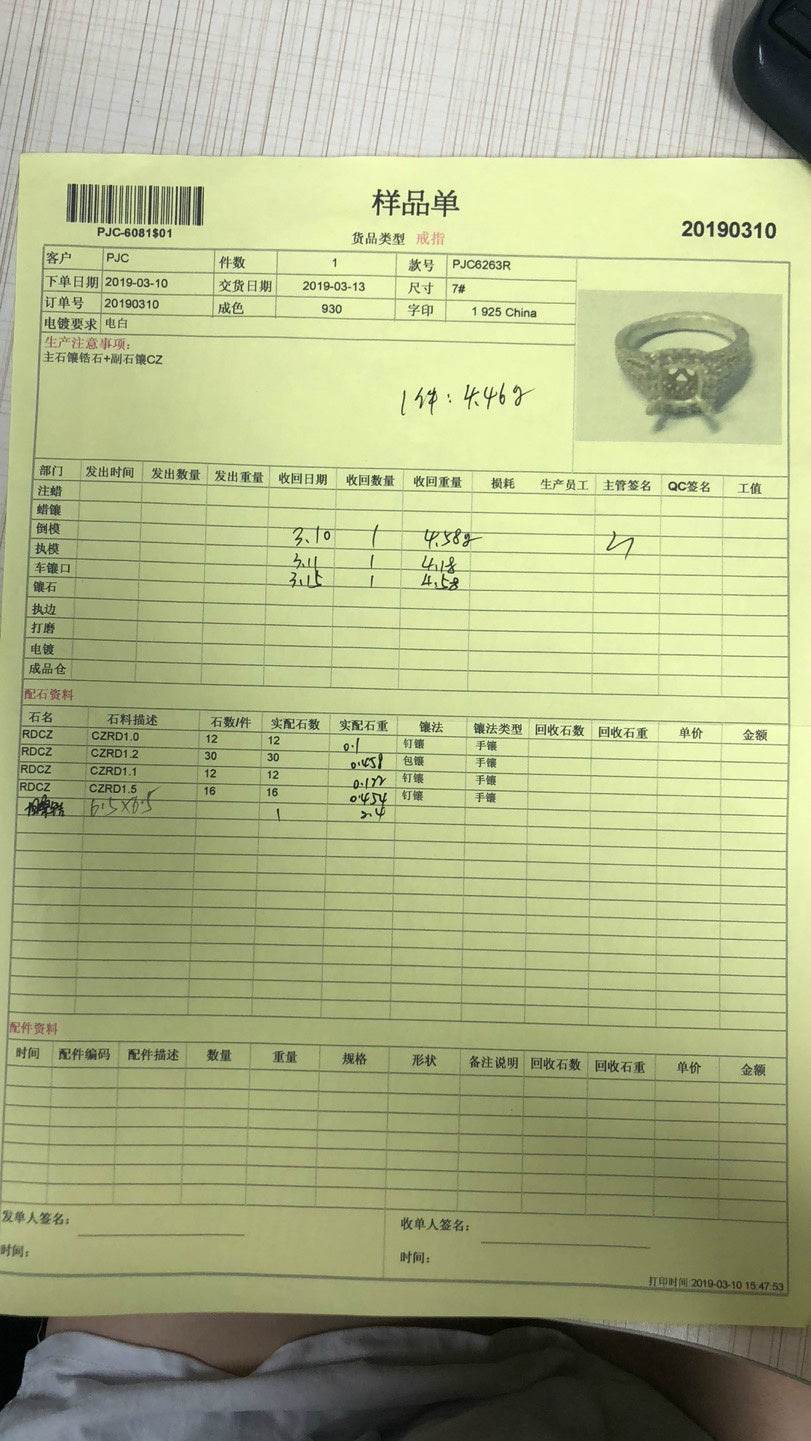 样品单
PJC-6081$01
货品类型 戒指
20190310
客户 PJC 件数 1 款号 PJC6263R
下单日期 2019-03-10 交货日期 2019-03-13 尺寸 7#
订单号 20190310 成色 930 字印 1 925 China
电镀要求 电白
生产注意事项:
主石镶锆石+副石镶CZ
1件: 4.46g
部门 发出时间 发出数量 发出重量 收回日期 收回数量 收回重量 损耗 生产员工 主管签名 QC签名 工值
注蜡
蜡镶
倒模 3.10 1 4.58g
执模
车镶口 3.11 1 4.18
镶石 3.15 1 4.58
执边
打磨
电镀
成品仓
配石资料
石名 石料描述 石数/件 实配石数 实配石重 镶法 镶法类型 回收石数 回收石重 单价 金额
RDCZ CZRD1.0 12 12 0.1 钉镶 手镶
RDCZ CZRD1.2 30 30 0.458 包镶 手镶
RDCZ CZRD1.1 12 12 0.122 钉镶 手镶
RDCZ CZRD1.5 16 16 0.454 钉镶 手镶
6.5X6.5 1 2.4
配件资料
时间 配件编码 配件描述 数量 重量 规格 形状 备注说明 回收石数 回收石重 单价 金额
发单人签名: 收单人签名:
时间: 时间:
打印时间:2019-03-10 15:47:53